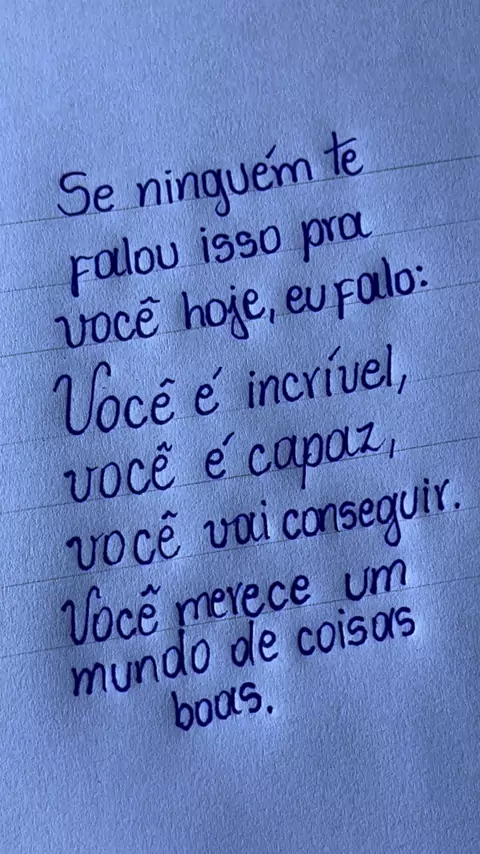 Se ninguém te
falou isso pra
você hoje, eu falo:
Você é incrível,
você é capaz,
você vai conseguir.
Você merece um
mundo de coisas
boas.